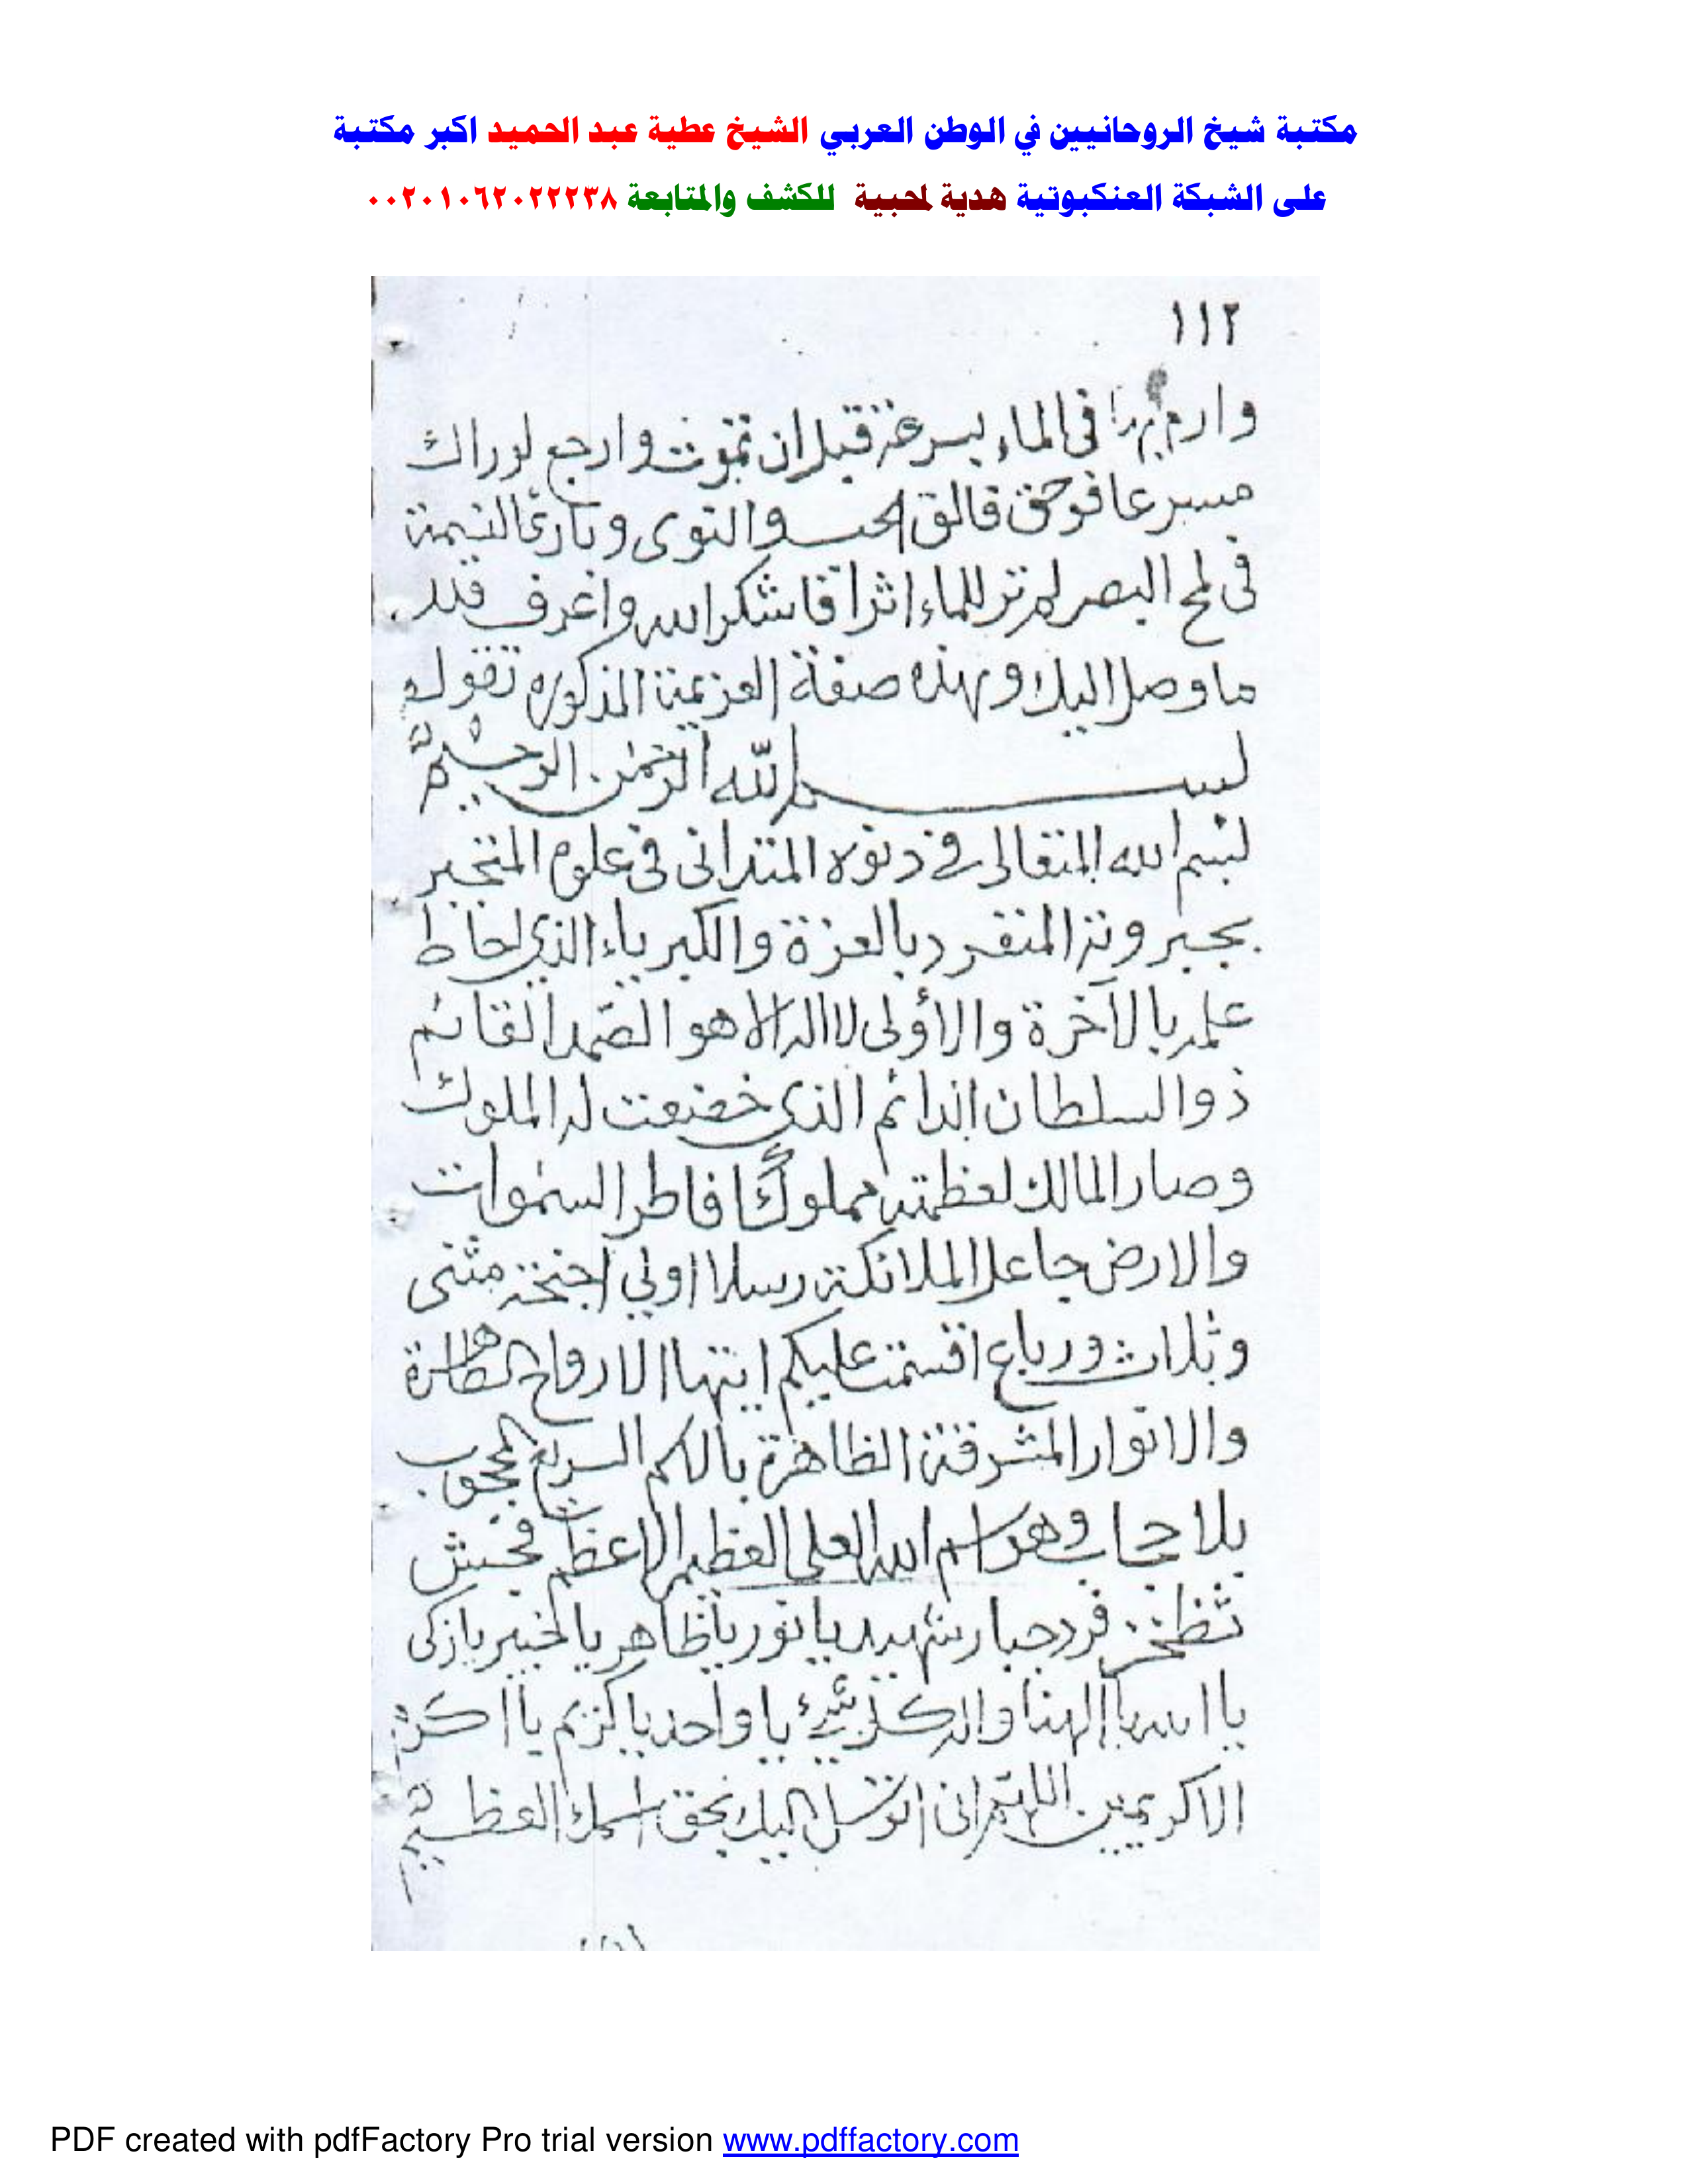 مكتبة شيخ الروحانيين في الوطن العربي الشيخ عطية عبد الحميد اكبر مكتبة
على الشبكة العنكبوتية هدية لمحبية للكشف والمتابعة ٠٠٢٠١٠٦٢٠٢٢٢٣٨
١١٢
وارم بها في الماء بسرعة قبل ان تموت وارجع لوراك
مسرعا فوحق فالق الحب والنوى وبارئ النسمة
في لمح البصر لم تر للماء اثرا فاشكر الله واعرف قدر
ما وصل اليك وهذه صفة العزيمة المذكوره تقول
بسم الله الرحمن الرحيم
بسم الله المتعالى في دنوه المتدانى في علوه المتجبر
بجبروته المنفرد بالعزة والكبرياء الذي احاط
علمه بالآخرة والأولى لا اله الا هو الصمد القائم
ذو السلطان الدائم الذي خضعت له الملوك
وصار المالك لعظمته مملوكا فاطر السموات
والارض جاعل الملائكة رسلا اولي اجنحة مثنى
وثلاث ورباع اقسمت عليكم ايتها الارواح الطاهرة
والانوار المشرقة الظاهرة بالكم السريع المحجوب
بلا حجاب وهو اسم الله العلى العظيم الاعظم فجش
ثظخز فرد جبار شهيد يا نور يا ظاهر يا خبير يا زكى
يا الله يا الهنا واله كل شيء يا واحد يا كريم يا اكرم
الاكرمين اللهم انى اتوسل اليك بحق اسمك العظيم
PDF created with pdfFactory Pro trial version www.pdffactory.com